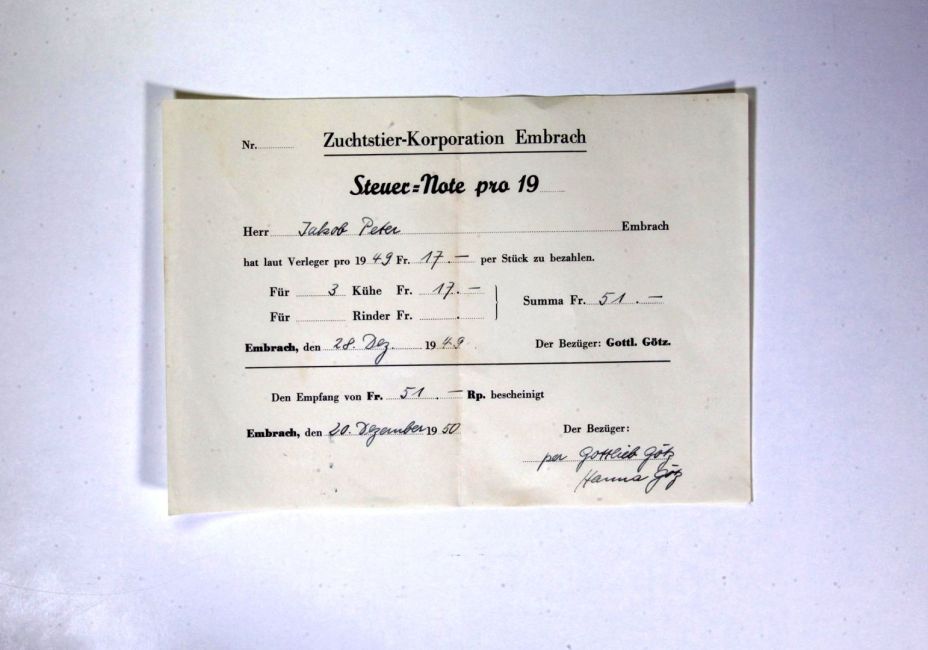 Nr.
Zuchtstier-Korporation Embrach
Steuer=Note pro 19
Herr Jakob Peter Embrach
hat laut Verleger pro 1949 Fr. 17.— per Stück zu bezahlen.
Für 3 Kühe Fr. 17.—
Summa Fr. 51.—
Für Rinder Fr. .
Embrach, den 28. Dez. 1949. Der Bezüger: Gottl. Götz.
Den Empfang von Fr. 51.— Rp. bescheinigt
Embrach, den 20. Dezember 1950 Der Bezüger:
per Gottlieb Götz
Hanna Götz